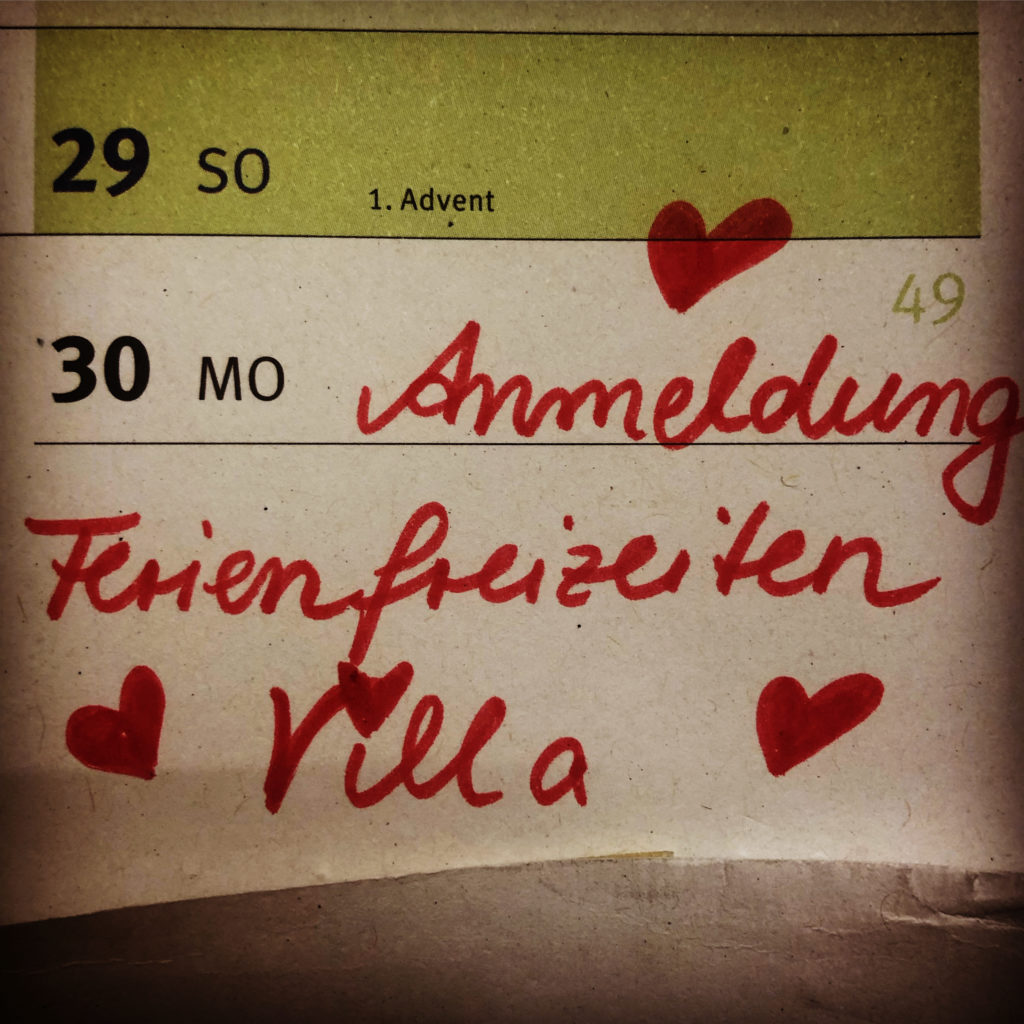 29 SO 1. Advent
49
30 MO Anmeldung
Ferienfreizeiten
Villa